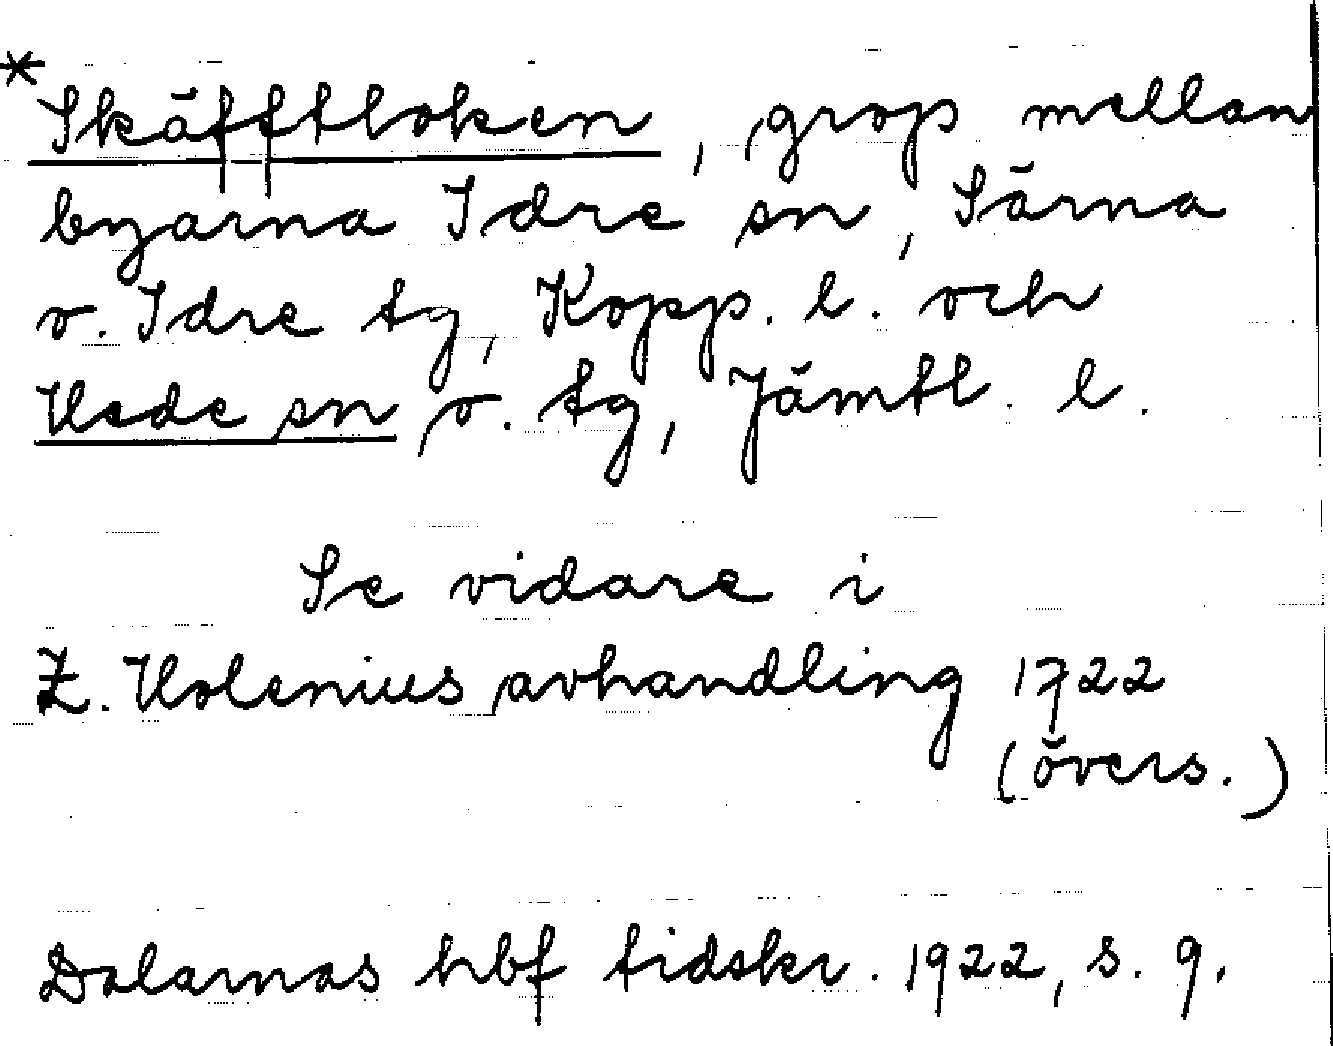 *Skäfftloken, grop mellan
byarna Idre sn, Särna
o. Idre tg, Kopp. l. och
Hede sn o. tg, Jämtl. l.
Se vidare i
Z. Holenius avhandling 1722
(övers.)
Dalarnas hbf tidskr. 1922, s. 9.